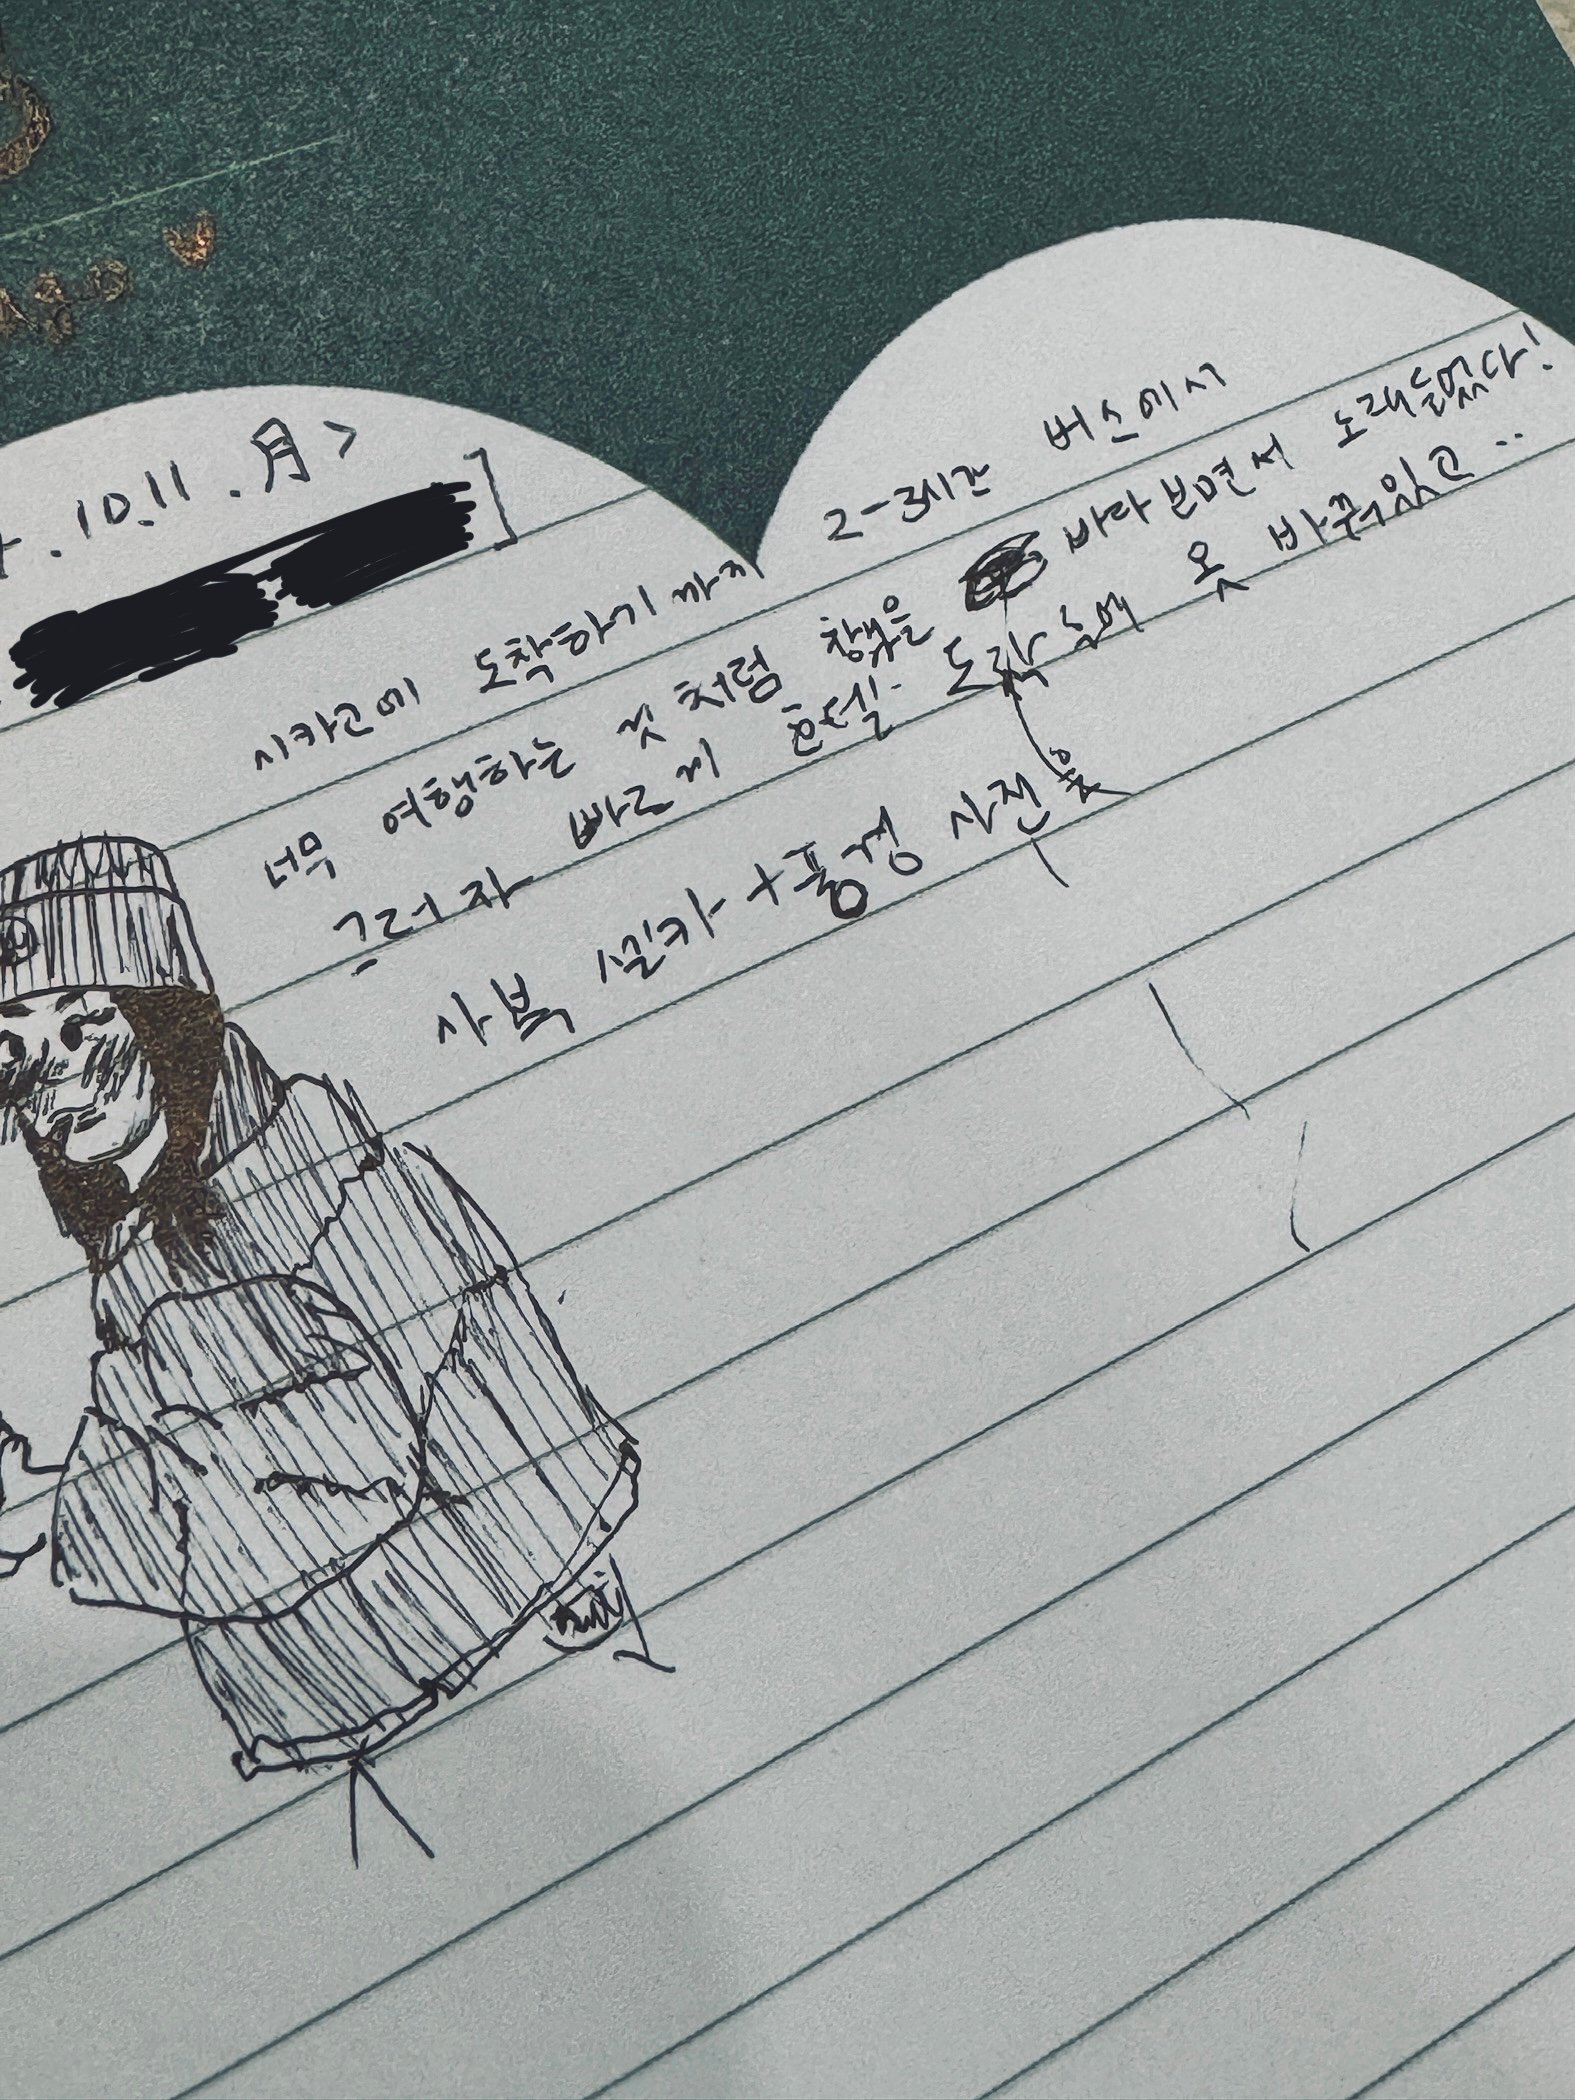 .10.11.月>
]
시카고에 도착하기까지 2-3시간 버스에서
너무 여행하는 것처럼 창밖을 바라보면서 노래들었다!
그러자 빠르게 호텔 도착후에 옷 바꿔입고..
사복 셀카+풍경 사진을